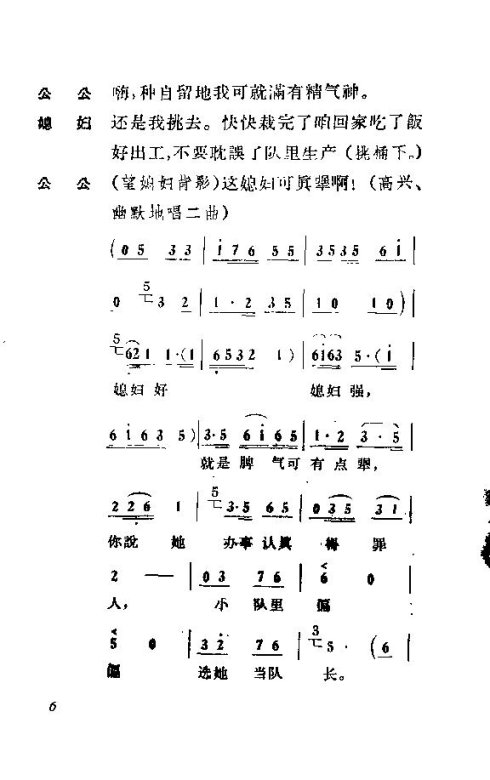 公 公 嗨,种自留地我可就滿有精气神。
媳 妇 还是我挑去。快快栽完了咱回家吃了飯
好出工,不要耽誤了队里生产(挑桶下。)
公 公 (望媳妇背影)这媳妇可眞犟啊!(高兴、
幽默地唱二曲)
(0 5 3 3 | i 7 6 5 5 | 3 5 3 5 6 i |
0 5 3 2 | 1 · 2 3 5 | 1 0 1 0) |
5 6 2 1 1 · (1 | 6 5 3 2 1) | 6 i 6 3 5 · (i |
媳妇 好 媳妇 强,
6 i 6 3 5) | 3 · 5 6 i 6 5 | 1 · 2 3 · 5 |
就是 脾 气可 有 点 犟,
2 2 6 1 | 5 3 · 5 6 5 | 0 3 5 3 1 |
你說 她 办事 认眞 得 罪
2 — | 0 3 7 6 | 6 0 |
人, 小 队里 偏
5 0 | 3 2 7 6 | 3 5 · (6 |
偏 选她 当队 长。
6